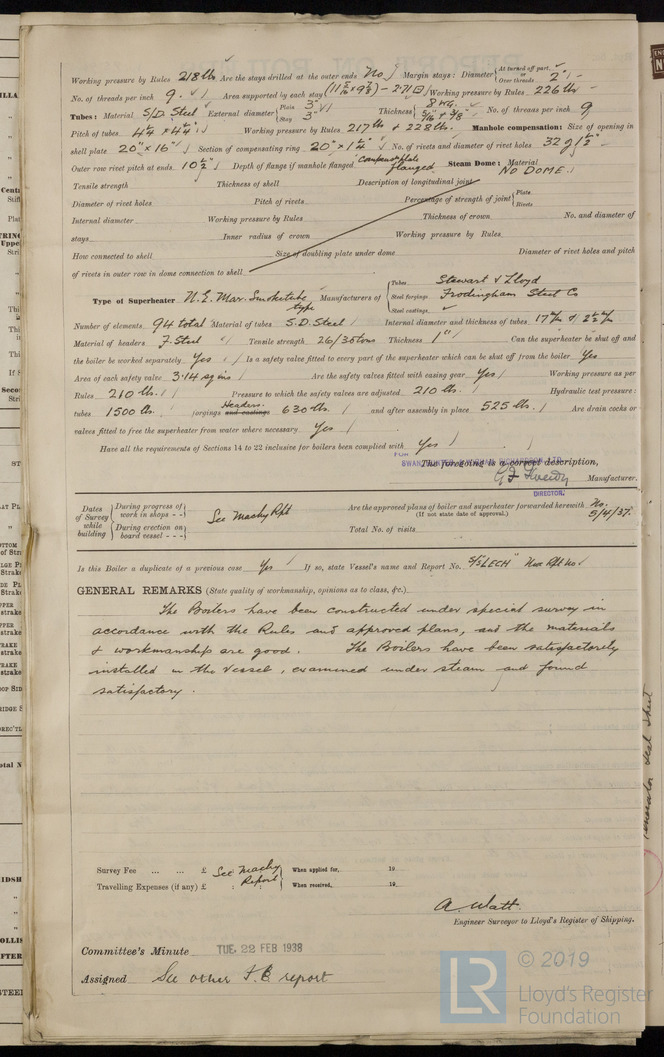 Working pressure by Rules 218 lbs Are the stays drilled at the outer ends No Margin stays: Diameter { At turned off part, or Over threads 2"
No. of threads per inch 9. Area supported by each stay Working pressure by Rules 226 lbs
Tubes: Material S/D. Steel External diameter { Plain 3" Stay 3" Thickness { 8 WG. 5/16" + 3/8" No. of threads per inch 9
Pitch of tubes 4¼ x 4¼" Working pressure by Rules 217 lbs + 228 lbs. Manhole compensation: Size of opening in
shell plate 20" x 16" Section of compensating ring 20" x 1¼" No. of rivets and diameter of rivet holes 32 of 1½"
Outer row rivet pitch at ends 10½" Depth of flange if manhole flanged flanged Steam Dome: Material NO DOME.
Tensile strength Thickness of shell Description of longitudinal joint
Diameter of rivet holes Pitch of rivets Percentage of strength of joint { Plate Rivets
Internal diameter Working pressure by Rules Thickness of crown No. and diameter of
stays Inner radius of crown Working pressure by Rules
How connected to shell Size of doubling plate under dome Diameter of rivet holes and pitch
of rivets in outer row in dome connection to shell
Type of Superheater N.E. Mar. Smoketube type Manufacturers of { Tubes Stewart & Lloyd
Steel forgings Frodingham Steel Co
Steel castings
Number of elements 94 total Material of tubes S.D. Steel Internal diameter and thickness of tubes 17 m/m & 2½ m/m
Material of headers F. Steel Tensile strength 26/30 tons Thickness 1" Can the superheater be shut off and
the boiler be worked separately Yes Is a safety valve fitted to every part of the superheater which can be shut off from the boiler Yes
Area of each safety valve 3.14 sq ins Are the safety valves fitted with easing gear Yes Working pressure as per
Rules 210 lbs. Pressure to which the safety valves are adjusted 210 lbs. Hydraulic test pressure:
tubes 1500 lbs. forgings and castings Headers. 630 lbs. and after assembly in place 525 lbs. Are drain cocks or
valves fitted to free the superheater from water where necessary Yes
Have all the requirements of Sections 14 to 22 inclusive for boilers been complied with Yes
FOR
The foregoing is a correct description,
Manufacturer.
DIRECTOR.
Dates of Survey while building { During progress of work in shops - - During erection on board vessel - - - } See Machy Rpt Are the approved plans of boiler and superheater forwarded herewith No.
(If not state date of approval.) 5/4/37.
Total No. of visits
Is this Boiler a duplicate of a previous case Yes If so, state Vessel's name and Report No. S/S "LECH" Nwc Rpt No
GENERAL REMARKS (State quality of workmanship, opinions as to class, &c.)
The Boilers have been constructed under special survey in
accordance with the Rules and approved plans, and the materials
& workmanship are good. The Boilers have been satisfactorily
installed in the Vessel, examined under steam and found
satisfactory.
Survey Fee ... ... £ See Machy Report When applied for, 19
Travelling Expenses (if any) £ : : When received, 19
A. Watt.
Engineer Surveyor to Lloyd's Register of Shipping.
Committee's Minute TUE. 22 FEB 1938
Assigned See other F.E. report
LR © 2019
Lloyd's Register
Foundation